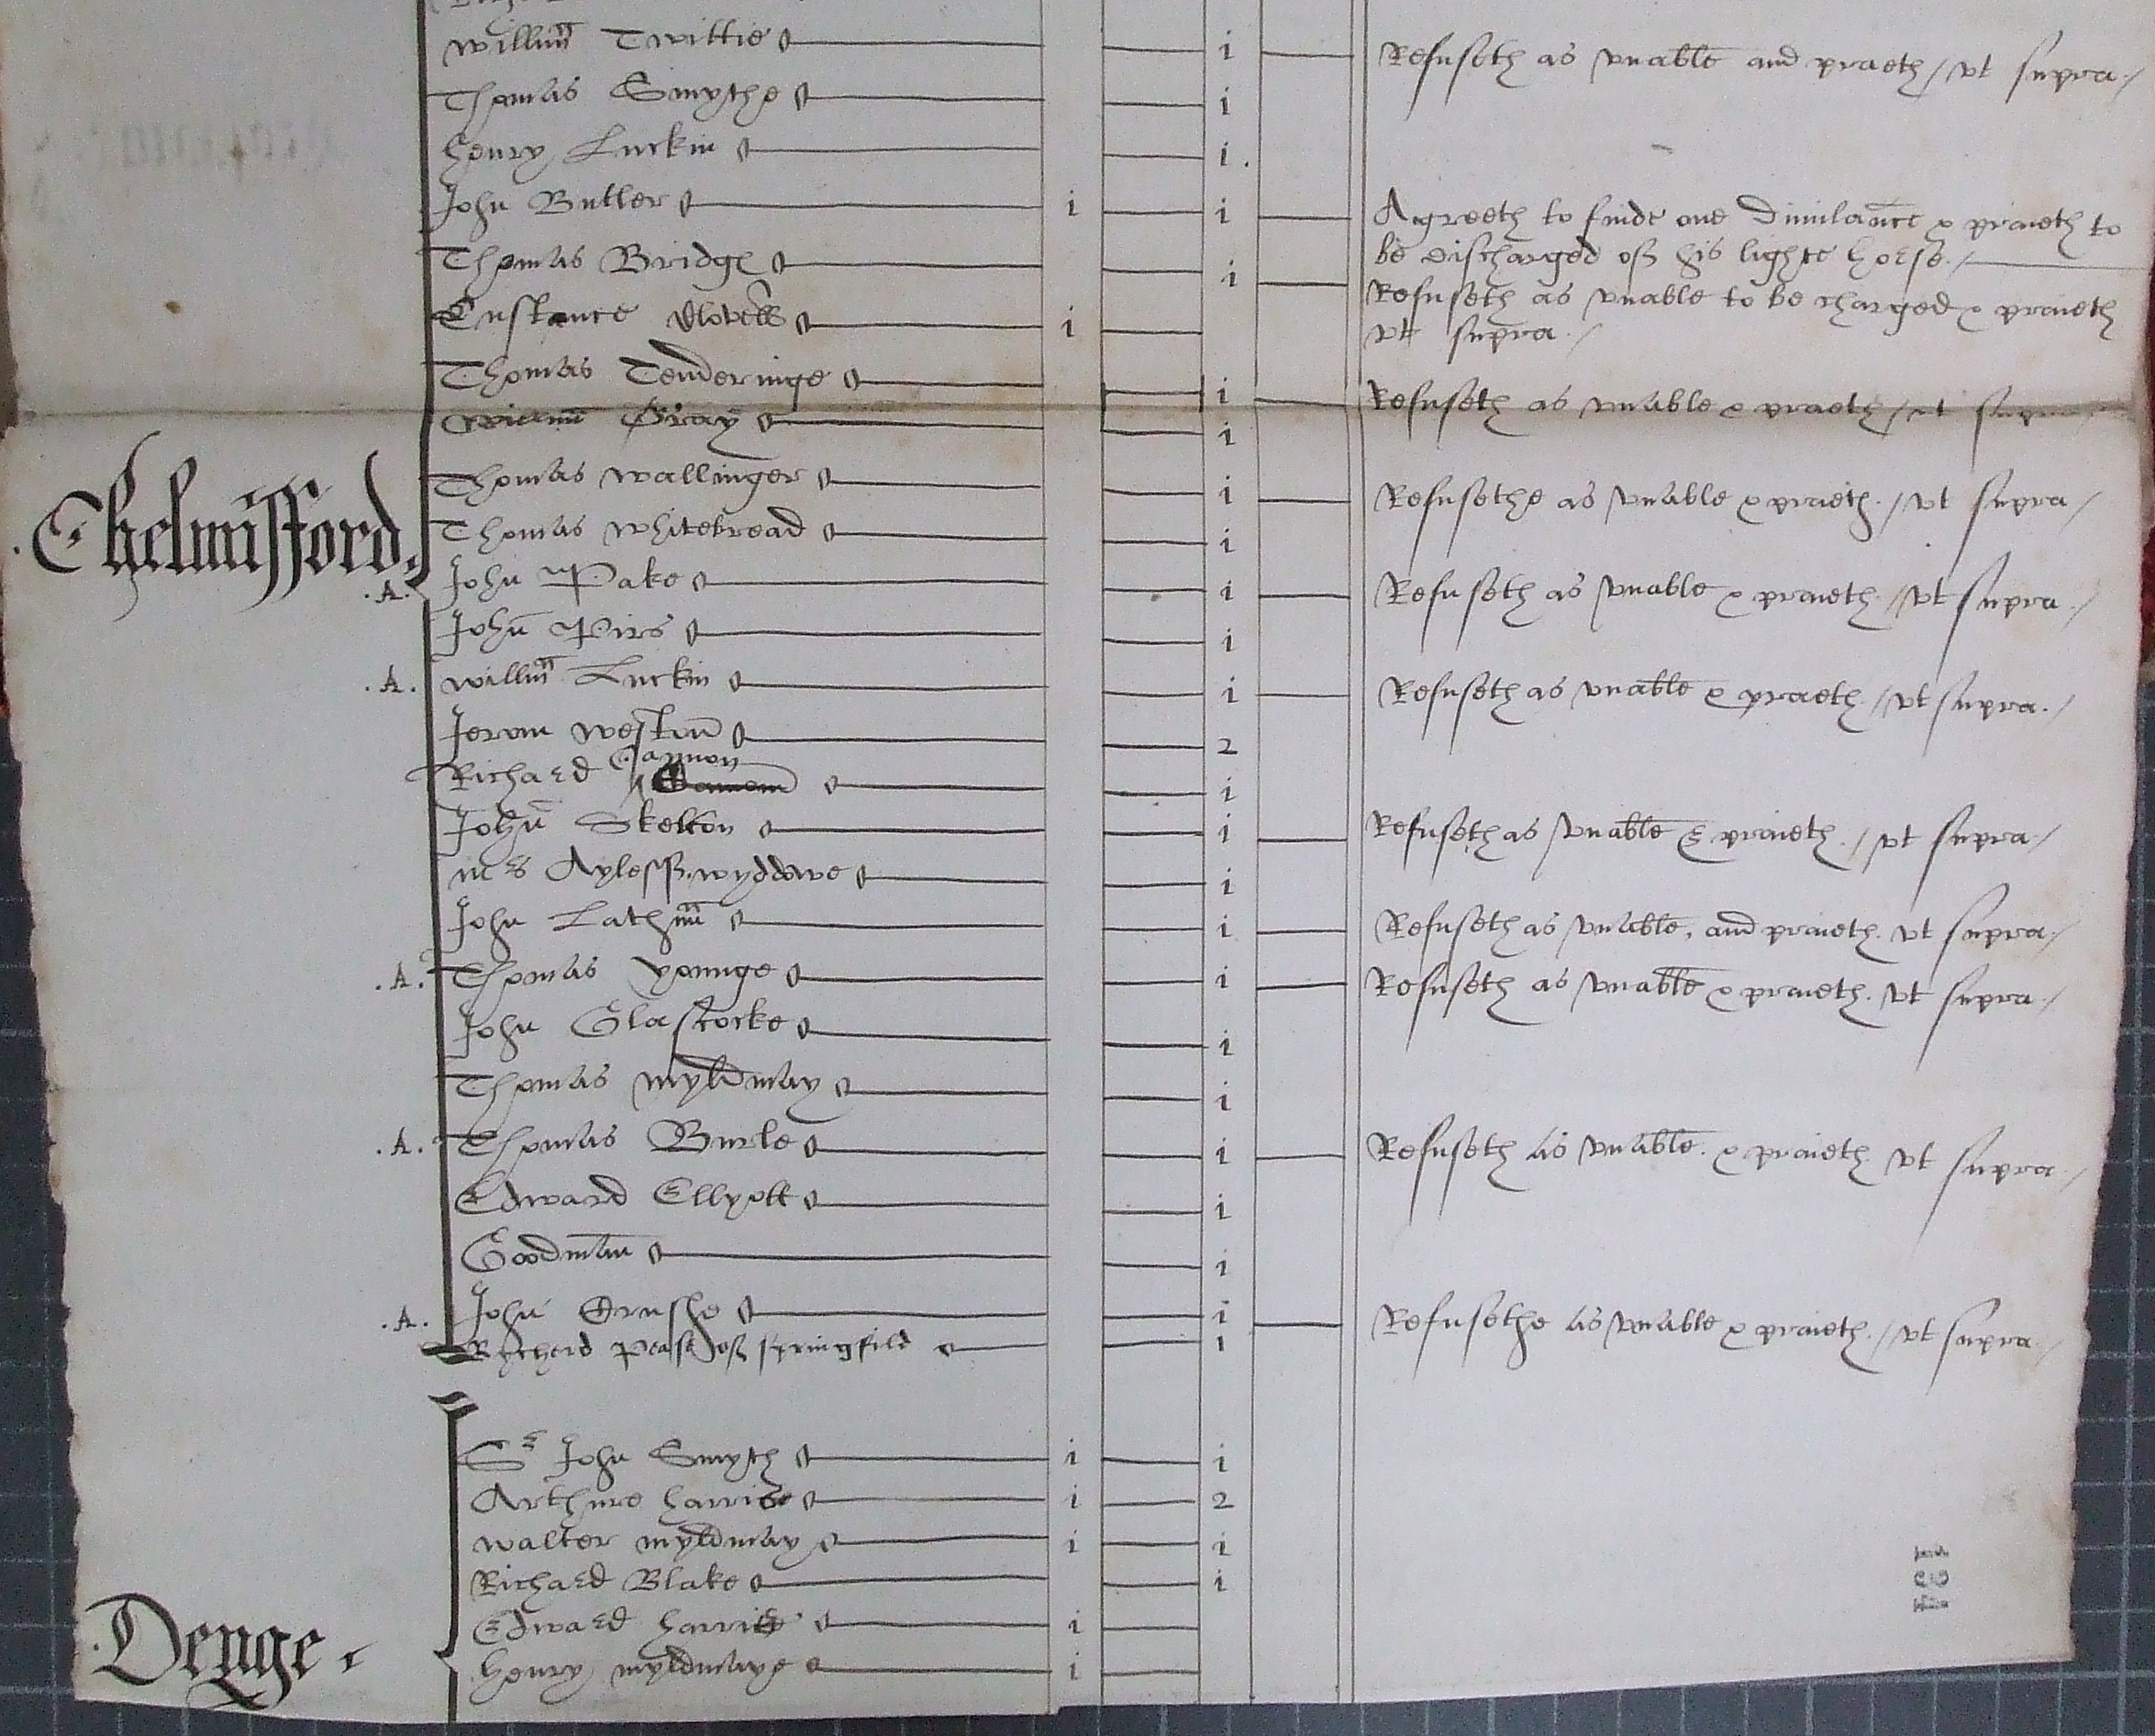 Willm Twittie — i — Refuseth as vnable and praeth / vt supra /
Thomas Smythe — i
Henry Luckin — i .
John Butler — i — i — Agreeth to finde one Dimilance & praieth to
be discharged of his lighte horse . /
Thomas Bridge — i — Refuseth as vnable to be charged & praieth
vt supra . /
Custance — i
Thomas Tenderinge — i — Refuseth as vnable & praeth / vt supra
Willm Gray — i
Thomas Wallinger — i — Refusethe as vnable & praieth . / vt supra /
Chelmissford
Thomas Whitebread — i
.A. John Pake — i — Refuseth as vnable & praieth // vt supra . /
John Pirs — i
.A. Willm Luckin — i — Refuseth as vnable & praeth // vt supra . /
Jerom Weston — 2
Cannon
Richard — i
John Skelton — i — Refuseth as vnable & praieth . / vt supra /
Mrs Ayleff wyddowe — i
John Lathm — i — Refuseth as vnable , and praieth . vt supra /
.A. Thomas Younge — i — Refuseth as vnable & praieth . vt supra /
John Glascocke — i
Thomas Myldmay — i
.A. Thomas Burle — i — Refuseth as vnable . & praieth vt supra /
Edward Ellyott — i
Goodman — i
.A. John Crushe — i — Refusethe as vnable & praieth . / vt supra /
Rycherd Pease of Springfild — i
Sr John Smyth — i — i
Arthure Harrise — i — 2
Walter Myldmay — i — i
Richard Blake — i
Edward Harris — i
Denge
Henry Myldmaye — i
131